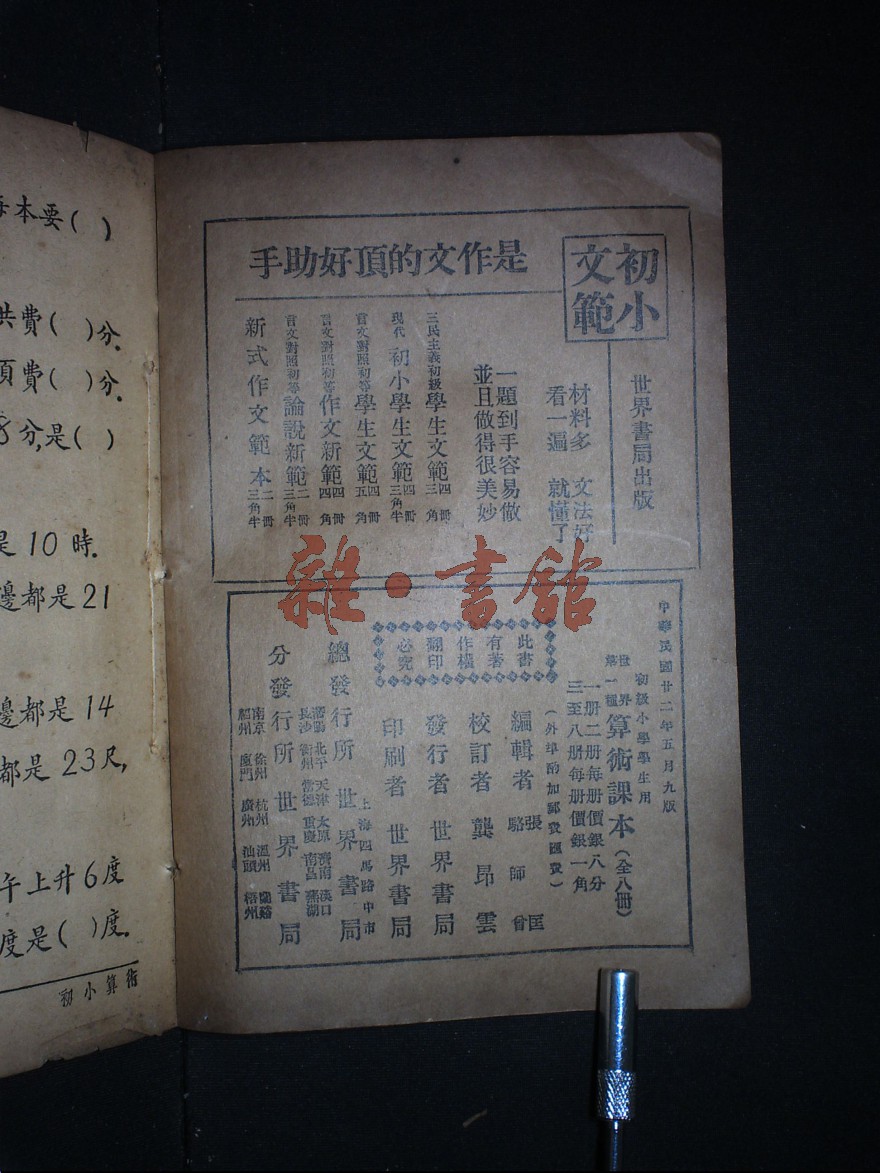 每本要( )
共費( )分.
須費( )分.
8分,是( )
是10時.
邊都是21
邊都是14
都是23尺,
午上升6度
度是( )度.
初小算術
初小文範
是作文的頂好助手
世界書局出版
材料多 文法好
看一遍 就懂了
一題到手容易做
並且做得很美妙
三民主義初級學生文範 四冊 三角
現代初小學生文範 四冊 三角半
言文對照初等學生文範 四冊 五角
言文對照初等作文新範 四冊 四角
言文對照初等論說新範 二冊 三角半
新式作文範本 二冊 三角半
雜·書館
中華民國廿二年五月九版
初級小學學生用
世界第一種算術課本(全八冊)
一册二册每册價銀八分
三至八册每册價銀一角
(外埠酌加郵費匯費)
此書有著作權翻印必究
編輯者 張匡 駱師曾
校訂者 龔昂雲
發行者 世界書局
印刷者 世界書局
上海四馬路中市
總發行所 世界書局
北平 天津 太原 濟南 漢口
長沙 衡州 常德 重慶 南昌 蕪湖
分發行所 世界書局
南京 徐州 杭州 溫州 蘭谿
廈門 廣州 汕頭 梧州